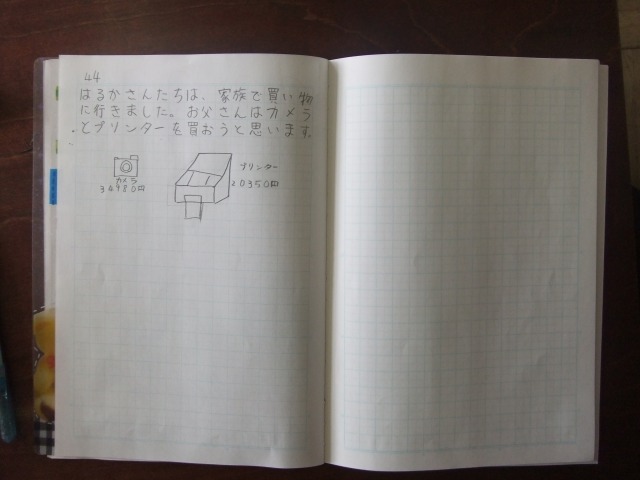 44
はるかさんたちは、家族で買い物
に行きました。お父さんはカメラ
とプリンターを買おうと思います。
カメラ
34980円
プリンター
20350円